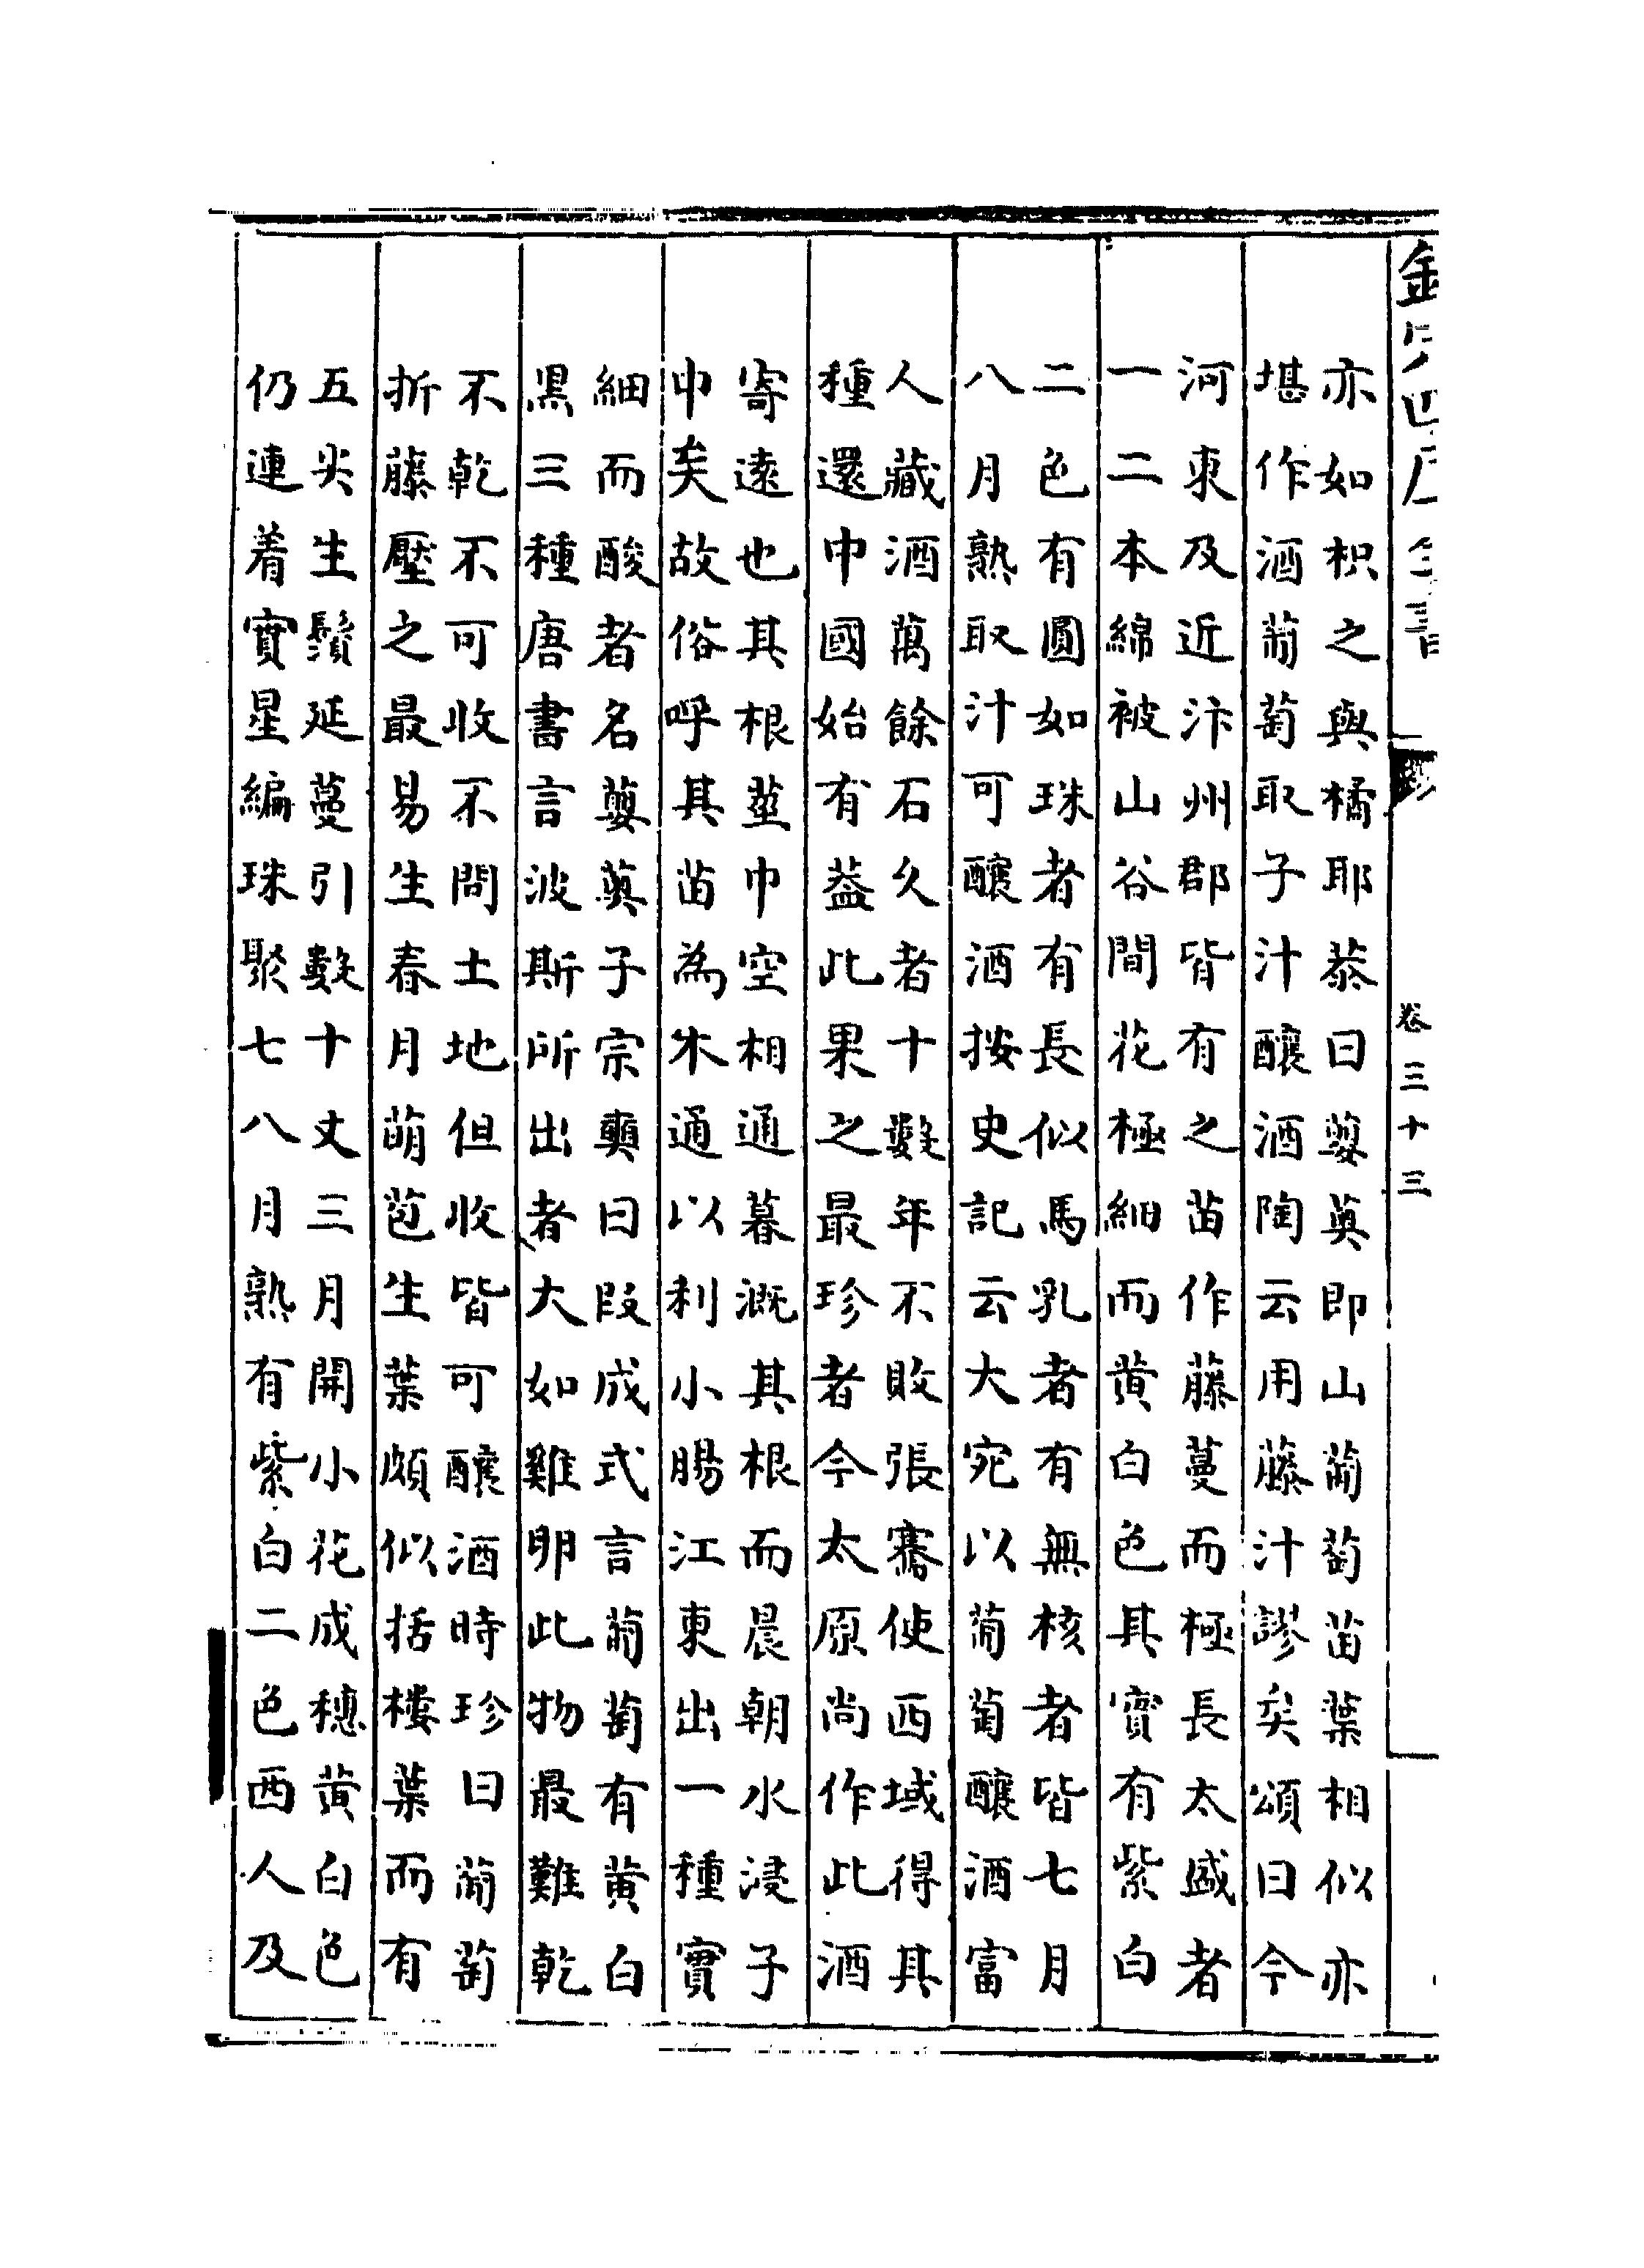 卷三十三
亦如枳之與橘耶恭曰蘡薁即山葡萄苗葉相似亦
堪作酒葡萄取子汁釀酒陶云用藤汁謬矣頌曰今
河東及近汴州郡皆有之苗作藤蔓而極長太盛者
一二本綿被山谷間花極細而黄白色其實有紫白
二色有圓如珠者有長似馬乳者有無核者皆七月
八月熟取汁可釀酒按史記云大宛以葡萄釀酒富
人藏酒萬餘石久者十數年不敗張騫使西域得其
種還中國始有葢此果之最珍者今太原尚作此酒
寄遠也其根莖中空相通暮溉其根而晨朝水浸子
中矣故俗呼其苗為木通以利小腸江東出一種實
細而酸者名蘡薁子宗奭曰段成式言葡萄有黄白
黒三種唐書言波斯所出者大如雞卵此物最難乾
不乾不可收不問土地但收皆可釀酒時珍曰葡萄
折藤壓之最易生春月萌苞生葉頗似括樓葉而有
五尖生鬚延蔓引數十丈三月開小花成穗黄白色
仍連着實星編珠聚七八月熟有紫白二色西人及